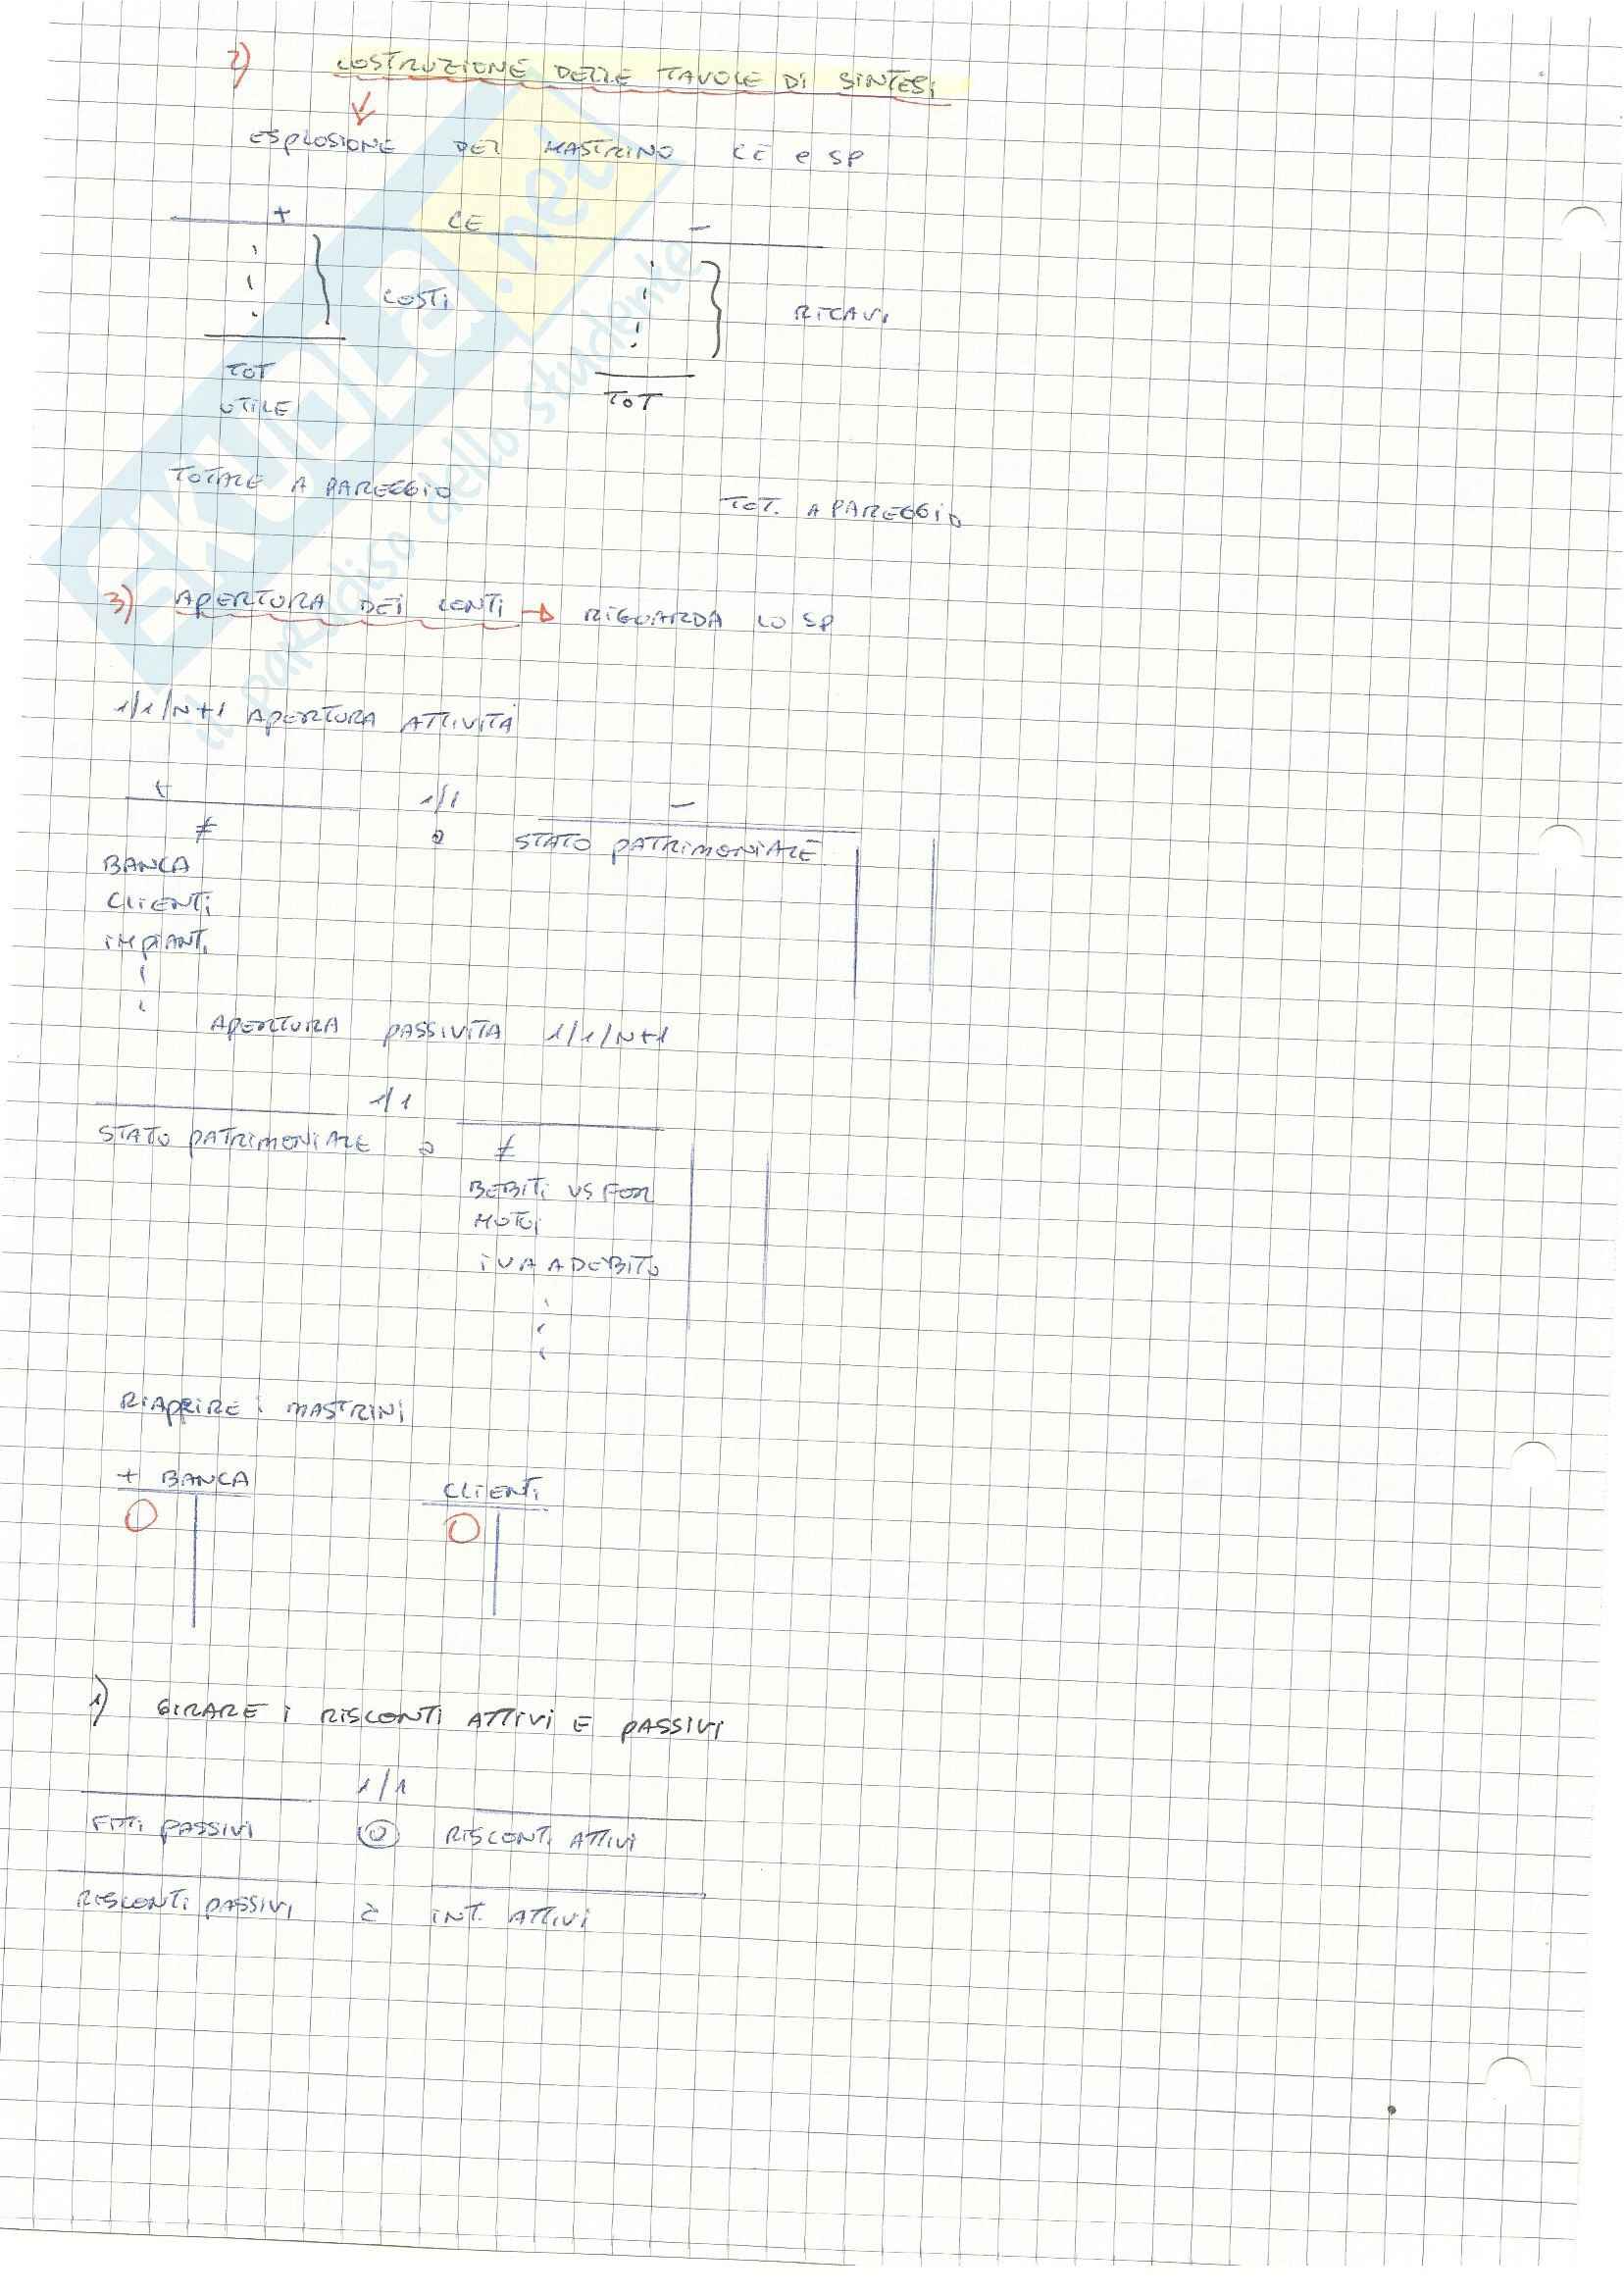 2) COSTRUZIONE DELLE TAVOLE DI SINTESI
ESPLOSIONE DEL MASTRINO CE e SP
+ CE -
COSTI
RICAVI
TOT
UTILE
TOT
TOTALE A PAREGGIO
TOT. A PAREGGIO
3) APERTURA DEI CONTI → RIGUARDA LO SP
1/1/N+1 APERTURA ATTIVITÀ
+ 1/1 -
≠ a STATO PATRIMONIALE
BANCA
CLIENTI
IMPIANTI
APERTURA PASSIVITA 1/1/N+1
1/1
STATO PATRIMONIALE a ≠
DEBITI VS FOR
MUTUI
IVA A DEBITO
RIAPRIRE I MASTRINI
+ BANCA
CLIENTI
1) GIRARE I RISCONTI ATTIVI E PASSIVI
1/1
FITTI PASSIVI a RISCONTI ATTIVI
RISCONTI PASSIVI a INT. ATTIVI
SKUOLA.net
il paradiso dello studente